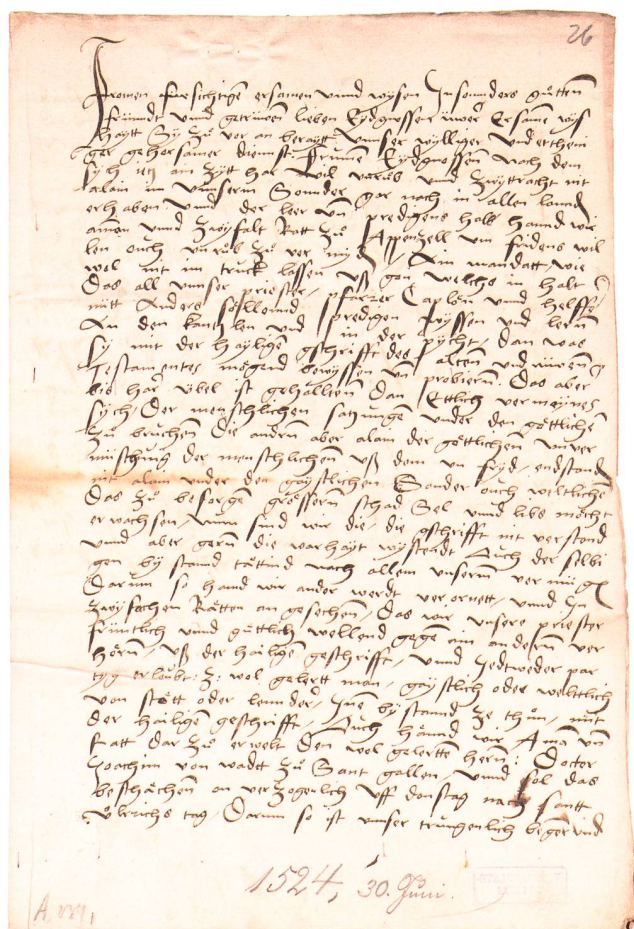 26
Fromen fursichtigen ersamen unnd wysen Insonders gutten
fründt unnd getrüwen lieben Eydgnossen üwer Ersame wys
haytt sy zu vor an beraytt unnser wylliger
ger gehorsamer dienst Frume Eydgnossen nach dem
sych jetz an zytt har vil unrub und zwyttracht nit
alain in unnserm Sonnder gar nach in allen lannd
erhaben und der leer un predigens halb hannd wir
aman unnd zwyfalt Ratt zu Appenzell um fridens wil
len ouch unrub zu ver myden Ain mandatt wie
wol nit im truck lassen uß gon welchs in halt
Das all unnser priester pfarrer Caplen unnd helffer
nitt anders söllennd predigen wyssen und leren
An den kantzlen und in der pycht dan was
sy mit der hayligen gschrifft des alten und nüwen
Testamentes mögend bewyssen un probieren Das aber
bis har übel ist gehalltten Dan Ettlich vermeynen
sych Der menschlichen satzungen under den göttlichen
zu bruchen Die andren aber alain der göttlichen unver
mischung der menschlichen uß dem un fryd endstand
nit alain under den gaystlichen Sonder ouch weltlichen
Das zu besorgen grössern schad Sel unnd libs möcht
erwachsen unnd sind wir die die gschrifft nit verstond
unnd aber gern die warhayt Ouch der selbi
gen by stand tättind nach allem unserm ver mügen
Darum so hand wir ander werdt verornett unnd In
zwyfachen Rätten an gesechen Das wir unsere priester
früntlich unnd güttlich wellend gegen ain anderen ver
hören uß der hailigen geschrifft unnd Jedtweder par
tyg erlaubt wol gelertt man gaystlich oder welttlich
von stett oder lennder Inen by stannd ze thun mit
der hailigen geschrifft Ouch hannd wir Aman un
Ratt dar zu erwelt Den wol gelertten heren Doctor
Joachim von wadtt zu Sant gallen unnd sol das
beschächen an verzogenlich uff donstag nach santt
ulrichs tag Darum so ist unser trungenlich beger und
1524, 30. Juni.